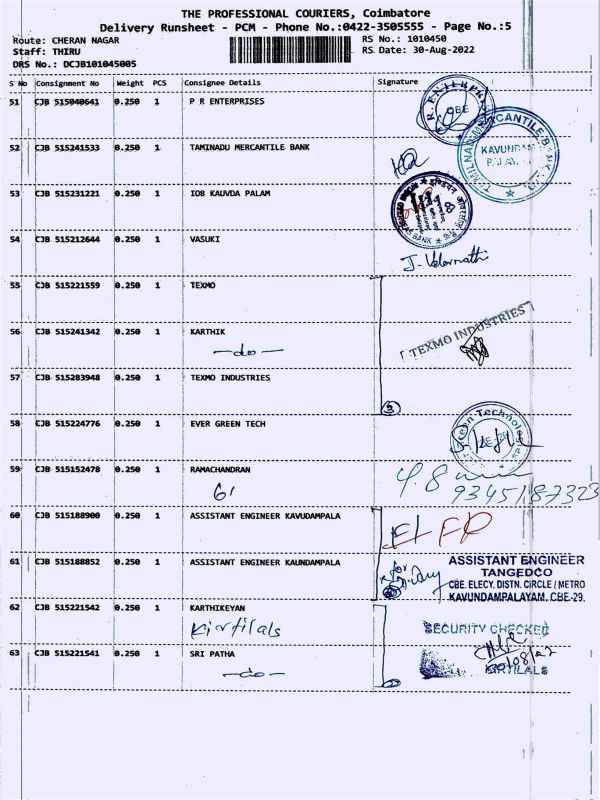 THE PROFESSIONAL COURIERS, Coimbatore
Delivery Runsheet - PCM - Phone No.:0422-3505555 - Page No.:5
Route: CHERAN NAGAR RS No.: 1010450
Staff: THIRU RS Date: 30-Aug-2022
DRS No.: DCJB101045005
S No Consignment No Weight PCS Consignee Details Signature
51 CJB 515040641 0.250 1 P R ENTERPRISES
R. ENTERPR
CBE
52 CJB 515241533 0.250 1 TAMINADU MERCANTILE BANK
TAMILNAD MERCANTILE BANK
KAVUNDAM
PALAY
53 CJB 515231221 0.250 1 IOB KAUVDA PALAM
BANK
54 CJB 515212644 0.250 1 VASUKI
55 CJB 515221559 0.250 1 TEXMO
56 CJB 515241342 0.250 1 KARTHIK
-do-
TEXMO INDUSTRIES
57 CJB 515283948 0.250 1 TEXMO INDUSTRIES
3
58 CJB 515224776 0.250 1 EVER GREEN TECH
Green Technolo
59 CJB 515152478 0.250 1 RAMACHANDRAN
9345187323
60 CJB 515188900 0.250 1 ASSISTANT ENGINEER KAVUDAMPALA
61 CJB 515188852 0.250 1 ASSISTANT ENGINEER KAUNDAMPALA
for
ASSISTANT ENGINEER
TANGEDCO
CBE. ELECY. DISTN. CIRCLE / METRO
KAVUNDAMPALAYAM, CBE-29.
62 CJB 515221542 0.250 1 KARTHIKEYAN
Kirtilals
SECURITY CHECKED
63 CJB 515221541 0.250 1 SRI PATHA
-do-
30/08/22
KIRTILALS